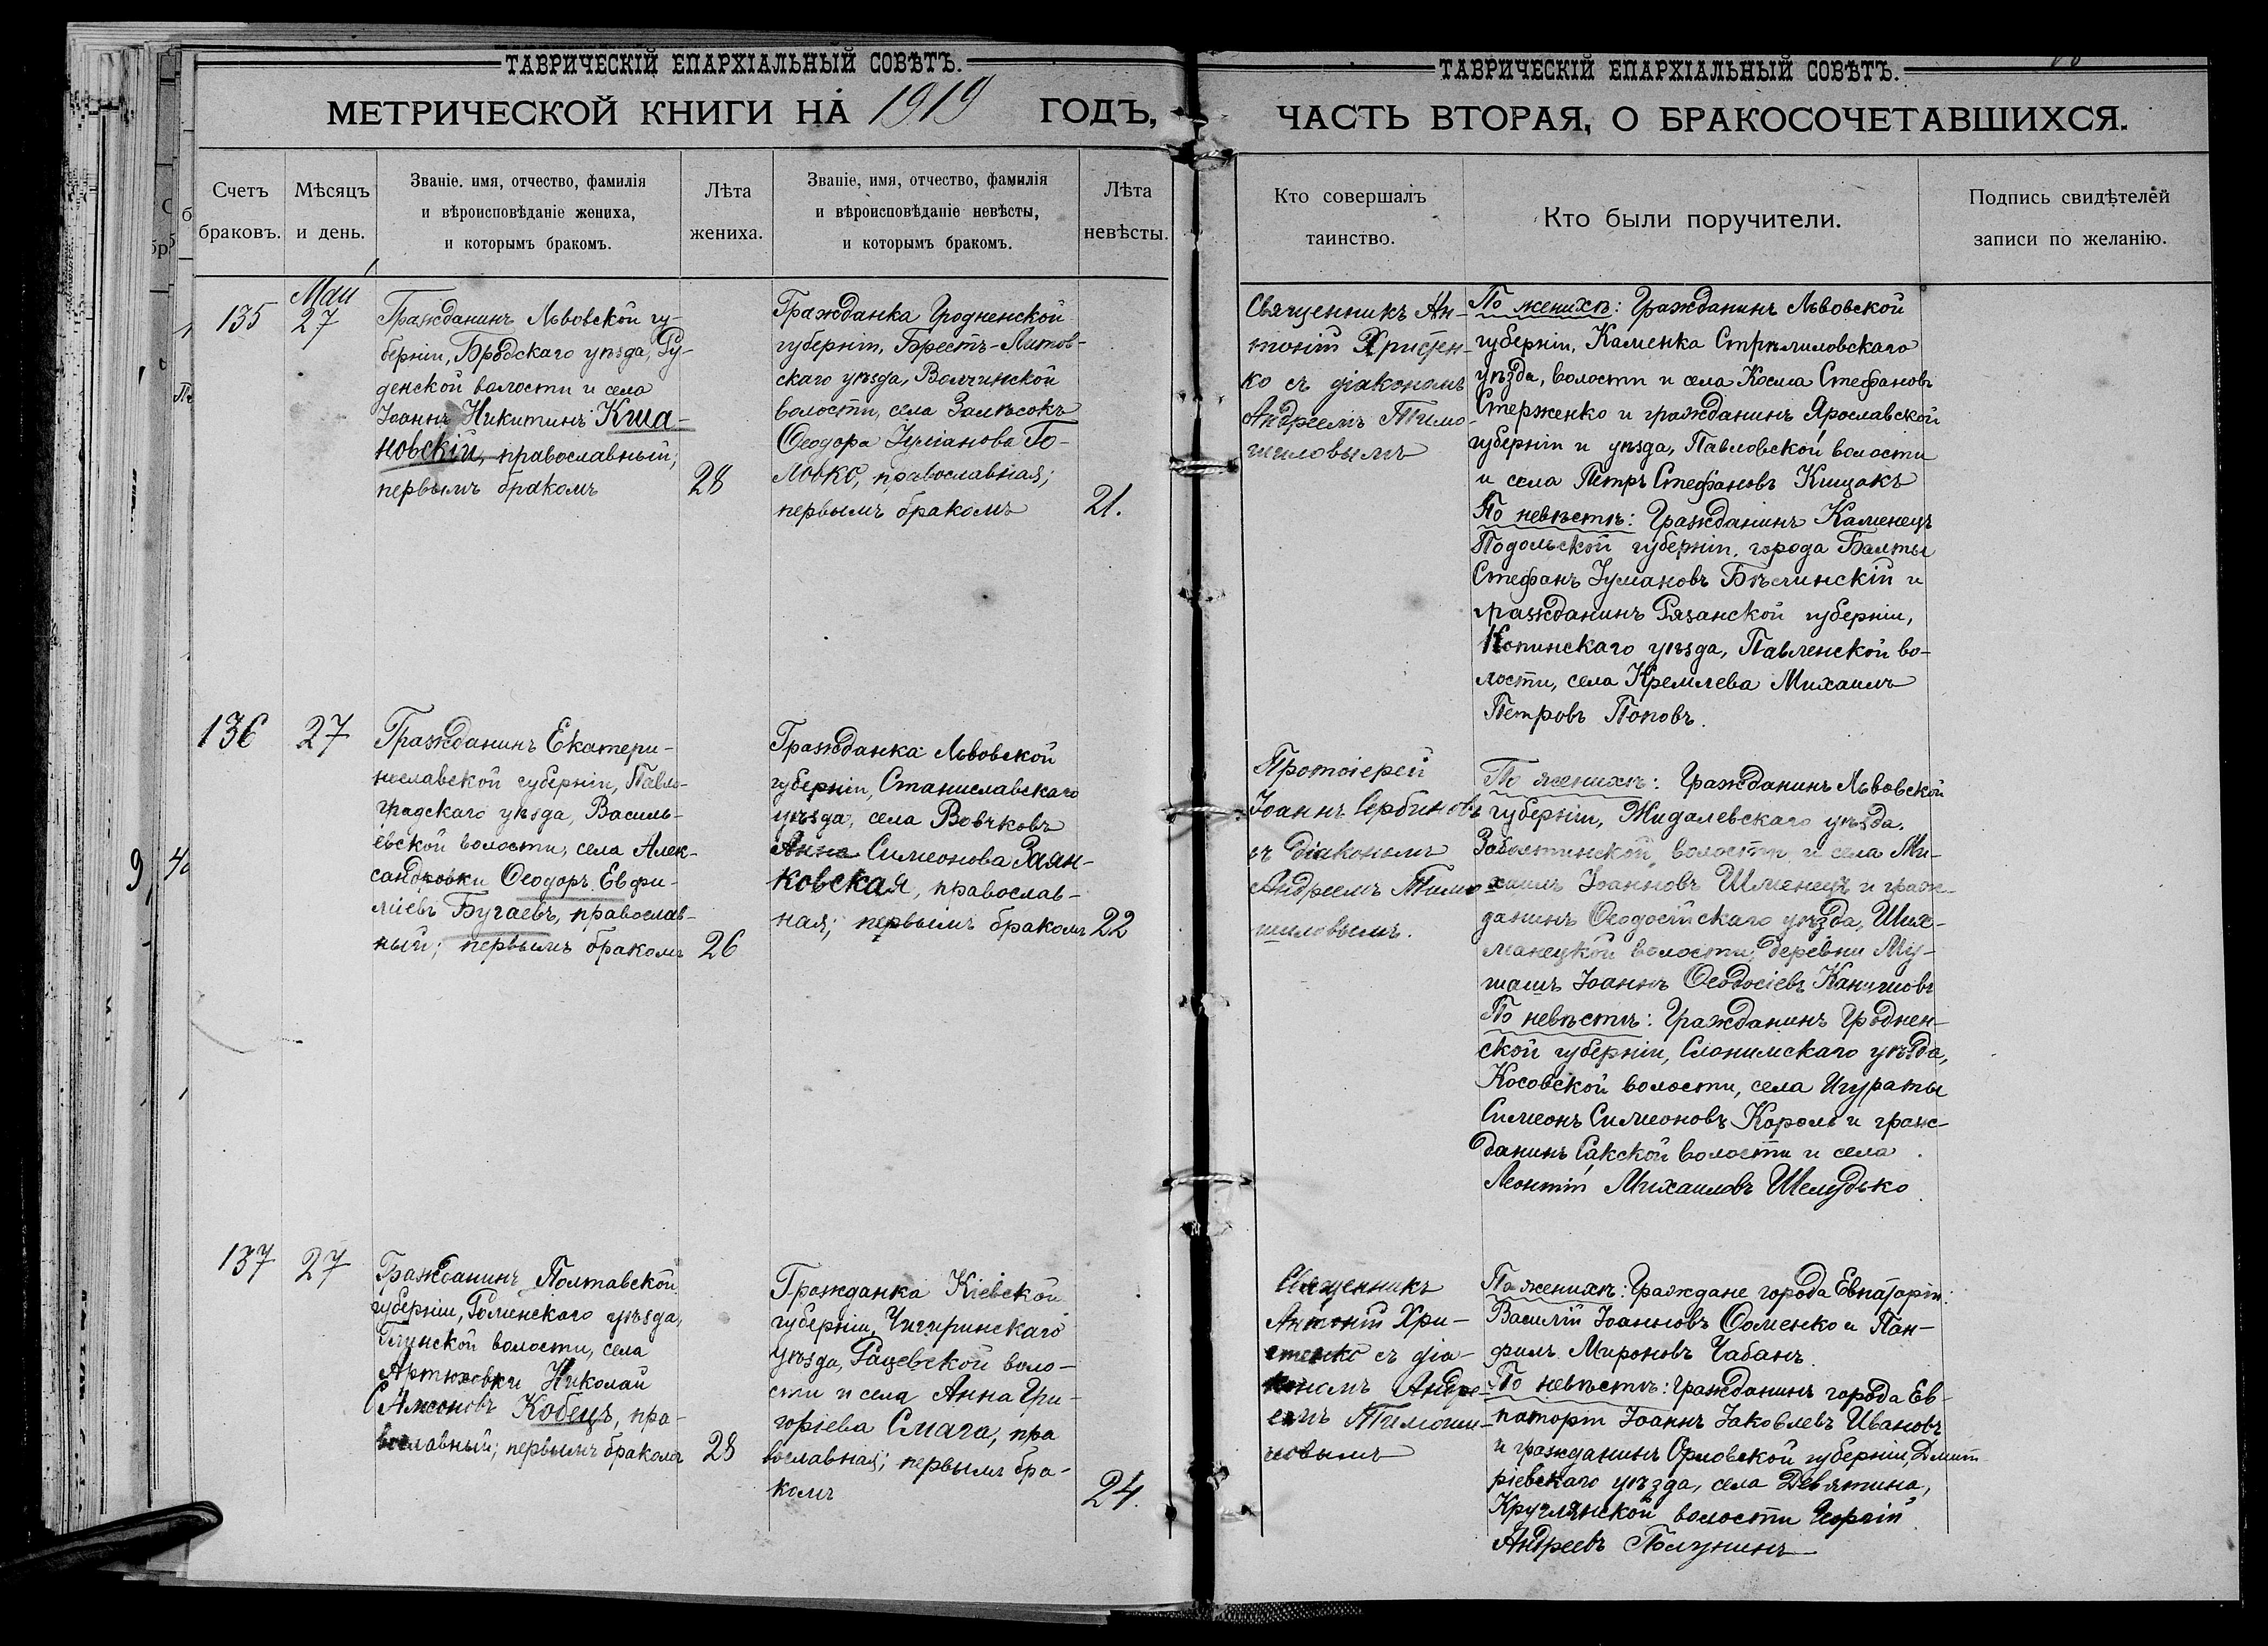 ТАВРИЧЕСКІЙ ЕПАРХІАЛЬНЫЙ СОВѢТЪ.
МЕТРИЧЕСКОЙ КНИГИ НА 1919 ГОДЪ,
Счетъ браковъ.
Мѣсяцъ и день.
Званіе. имя, отчество, фамилія
и вѣроисповѣданіе жениха,
и которымъ бракомъ.
Лѣта жениха.
Званіе, имя, отчество, фамилія
и вѣроисповѣданіе невѣсты,
и которымъ бракомъ.
Лѣта невѣсты.
ТАВРИЧЕСКІЙ ЕПАРХІАЛЬНЫЙ СОВѢТЪ.
ЧАСТЬ ВТОРАЯ, О БРАКОСОЧЕТАВШИХСЯ.
Кто совершалъ
таинство.
Кто были поручители.
Подпись свидѣтелей
записи по желанію.
135
Май
27
Гражданинъ Львовской гу-
берніи, Бродскаго уѣзда, Ру-
денской волости и села
Іоаннъ Никитинъ Киша-
новскій, православный;
первымъ бракомъ
28
Гражданка Гродненской
губерніи, Брестъ-Литов-
скаго уѣзда, Волчинской
волости, села Залѣсокъ
Ѳеодора Іуліанова Го-
ловко, православная;
первымъ бракомъ
21.
Священникъ Ан-
тоній Христен-
ко съ діакономъ
Андреемъ Тимо-
шиловымъ
По женихѣ: Гражданинъ Львовской
губерніи, Каменка Стрѣлиловскаго
уѣзда, волости и села Косма Стефановъ
Стерженко и гражданинъ Ярославской
губерніи и уѣзда, Павловской волости
и села Петръ Стефановъ Кищакъ
По невѣстѣ: Гражданинъ Каменецъ
Подольской губерніи, города Балты
Стефанъ Іулиановъ Бѣлинскій и
гражданинъ Рязанской губерніи,
уѣзда, Павленской во-
лости, села Кремлева Михаилъ
Петровъ Поповъ.
136
27
Гражданинъ Екатери-
нославской губерніи, Павло-
градскаго уѣзда, Василь-
евской волости, села Алек-
сандровки Ѳеодоръ Евфи-
міевъ Бугаевъ, православ-
ный; первымъ бракомъ
26
Гражданка Львовской
губерніи, Станиславскаго
уѣзда, села Вовчковъ
Анна Симеонова Заян-
ковская, православ-
ная; первымъ бракомъ
22
Протоіерей
Іоаннъ Сербиновъ
съ діакономъ
Андреемъ Тимо-
шиловымъ.
По женихѣ: Гражданинъ Львовской
губерніи, Жидалевскаго уѣзда,
Заболотинской волости и села Ми-
хаилъ Іоанновъ Шленецъ и граж-
данинъ Ѳеодосійскаго уѣзда, Ших-
манецкой волости, деревни Му-
ташъ Іоаннъ Ѳеодосіевъ
По невѣстѣ: Гражданинъ Гроднен-
ской губерніи, Слонимскаго уѣзда,
Косовской волости, села Нгураты
Симеонъ Симеоновъ Король и граж-
данинъ Сакской волости и села
Леонтій Михаиловъ Шелудько
137
27
Гражданинъ Полтавской
губерніи, Роменскаго уѣзда,
Глинской волости, села
Артюховки Николай
Самсоновъ Кобецъ, пра-
вославный; первымъ бракомъ
28
Гражданка Кіевской
губерніи, Чигиринскаго
уѣзда, Рацевской воло-
сти и села Анна Гри-
горіева Смага, пра
вославная; первымъ бра-
комъ
24.
Священникъ
Антоній Хри-
стенко съ діа-
кономъ Андре-
емъ Тимоши-
ловымъ
По женихѣ: Граждане города Евпаторіи:
Василій Іоанновъ Ѳоменко и Пан-
филъ Мироновъ Чабанъ.
По невѣстѣ: Гражданинъ города Ев-
паторіи Іоаннъ Іаковлевъ Ивановъ
и гражданинъ Орловской губерніи, Дмит-
ріевскаго уѣзда, села Девятина,
Круглянской волости Георгій
Андреевъ Полунинъ